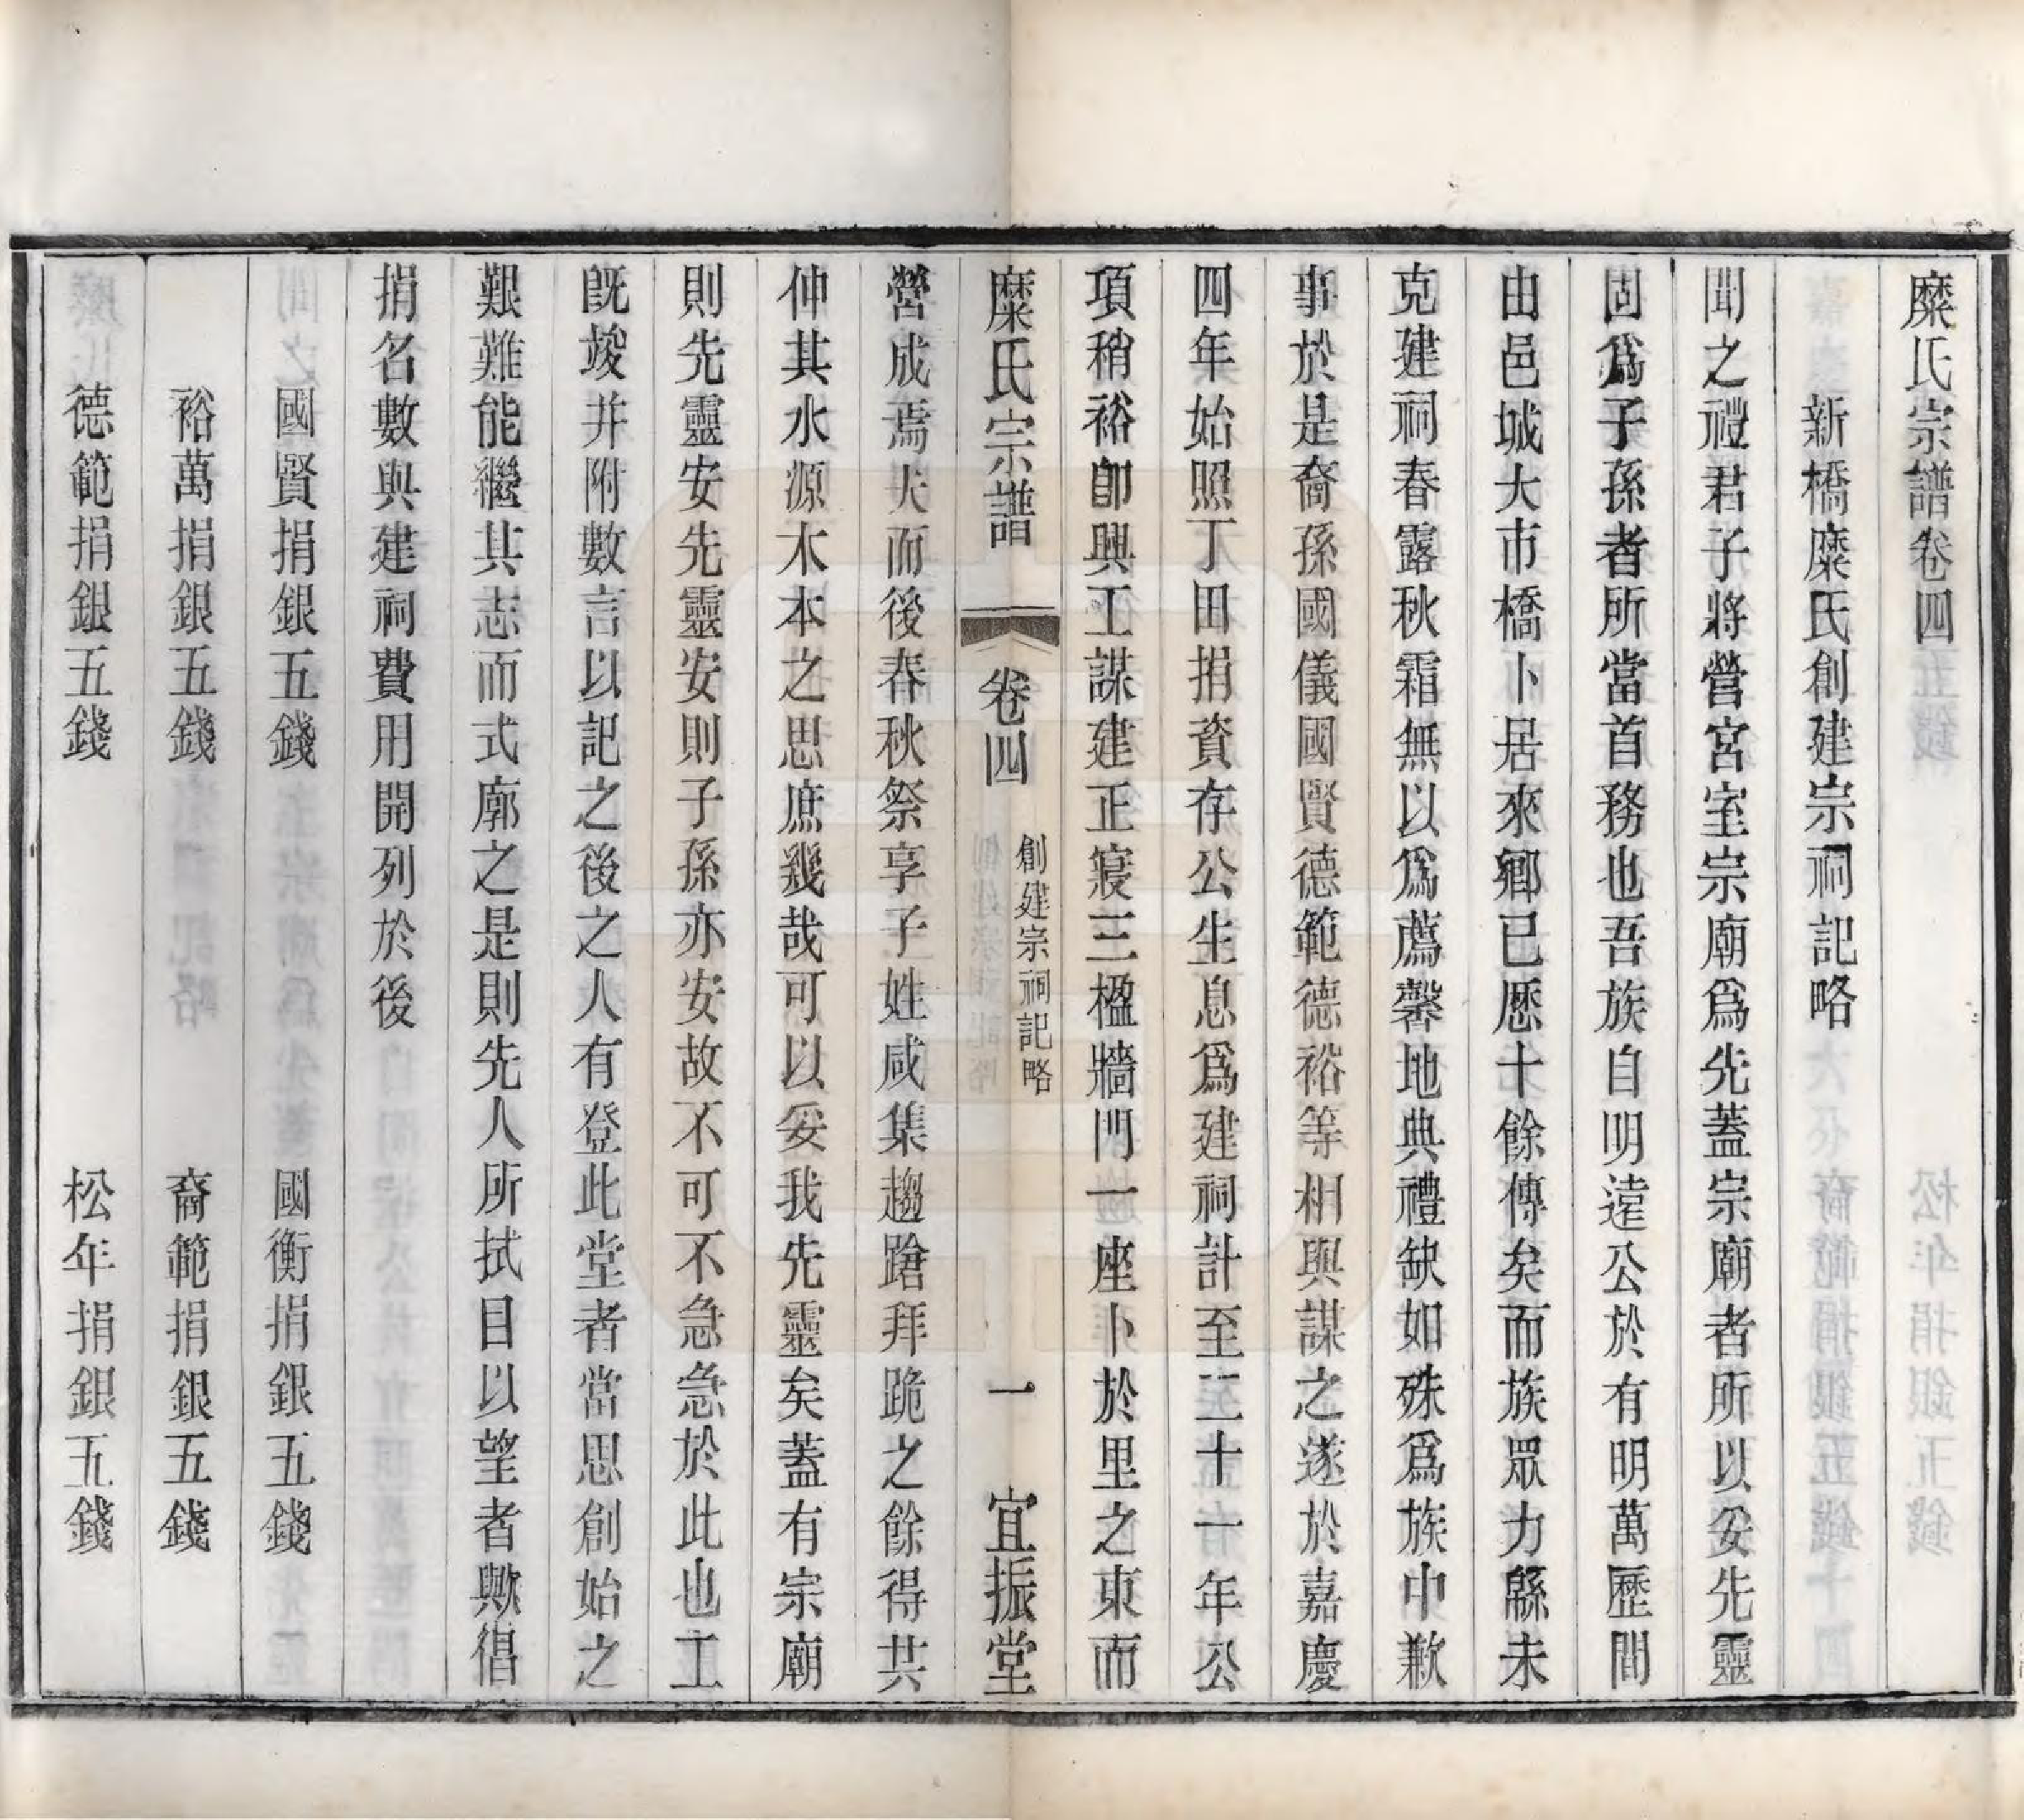 糜氏宗譜卷四
新橋糜氏創建宗祠記略
聞之禮君子將營宮室宗廟爲先蓋宗廟者所以妥先靈
固爲子孫者所當首務也吾族自明遠公於有明萬歷間
由邑城大市橋卜居來鄉已歷十餘傳矣而族眾力緜未
克建祠春露秋霜無以爲薦馨地典禮缺如殊爲族中歉
事於是裔孫國儀國賢德範德裕等相與謀之遂於嘉慶
四年始照丁田捐資存公生息爲建祠計至二十一年公
項稍裕卽興工謀建正寢三楹牆門一座卜於里之東而
糜氏宗譜 卷四 創建宗祠記略 一 宜振堂
營成焉夫而後春秋祭享子姓咸集趨蹌拜跪之餘得共
仲其水源木本之思庶幾哉可以妥我先靈矣蓋有宗廟
則先靈安先靈安則子孫亦安故不可不急急於此也工
旣竣并附數言以記之後之人有登此堂者當思創始之
艱難能繼其志而式廓之是則先人所拭目以望者歟倡
捐名數與建祠費用開列於後
國賢捐銀五錢 國衡捐銀五錢
裕萬捐銀五錢 裔範捐銀五錢
德範捐銀五錢 松年捐銀五錢